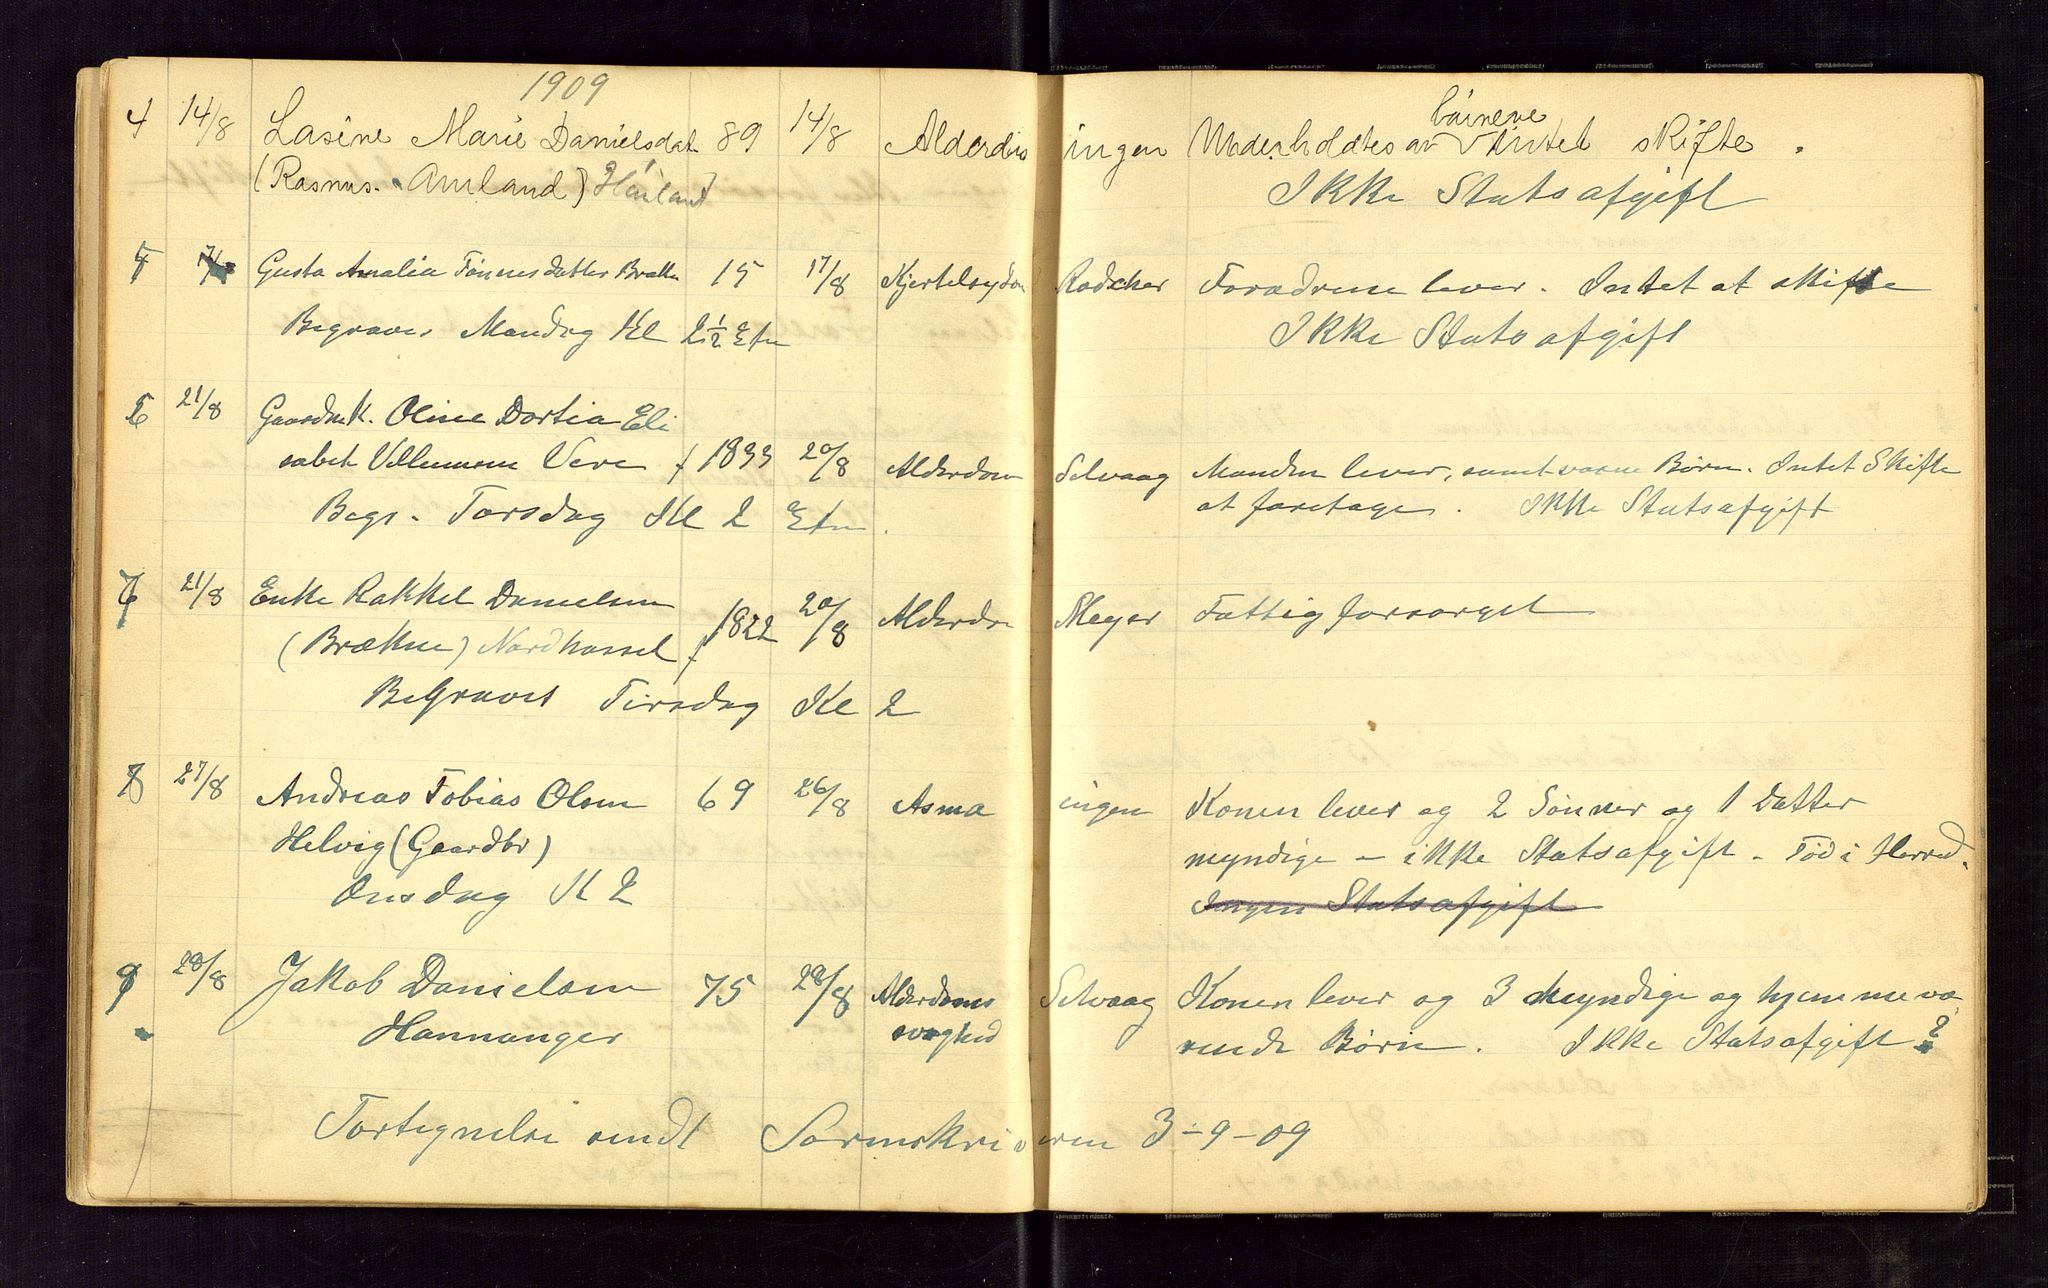 1909
4 14/8 Lasine Marie Danielsdat 89 14/8 Alderdoms ingen Underholdtes av børnene Intet skifte.
(Rasmus. Amland) Høiland Ikke Statsafgift
5 Gusta Amalia Tønnesdatter Brække 15 17/8 Kjertelsygdom Rodscher Forældrene lever. Intet at skifte
Begraves Mandag Kl 2½ Etm Ikke Statsafgift
6 21/8 Gaardmk. Oline Dortia Eli
sabet Villumsen Vere f 1833 20/8 Alderdom Selvaag Manden lever, samt voxne Børn. Intet Skifte
Begr. Torsdag Kl 2 Etm. at foretage. Ikke Statsafgift
7 21/8 Enke Rakkel Danielsen
(Brækne) Nordhassel f 1822 20/8 Alderdom Meyer Fattigforsørget
Begraves Tirsdag Kl 2
8 27/8 Andreas Tobias Olsen 69 26/8 Asma ingen Konen lever og 2 Sønner og 1 Datter
Helvig (Gaardbr) myndige – ikke Statsafgift – Fød i Herred.
Onsdag Kl 2 Ingen Statsafgift
9 28/8 Jakob Danielsen 75 28/8 Alderdoms Selvaag Konen lever og 3 myndige og hjemmevæ
Hannanger svaghed rende Børn. Ikke Statsafgift?
Fortegnelse sendt Sorenskriveren 3-9-09